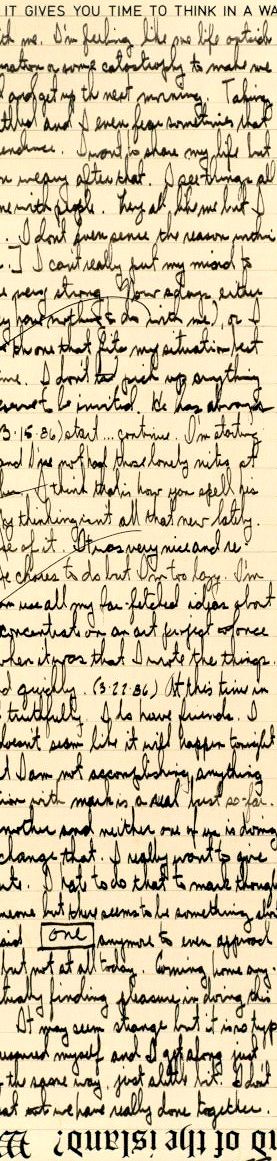 IT GIVES YOU TIME TO THINK IN A WA
th me. I'm feeling like no life outside
mation or some catastrophy to make me
d and get up th next morning. Taking
and I even fear sometimes that
I want to share my life but
n weary after that. I see things all
me with people. They all like me but I
. I dont even sense the reason within
I can't really put my mind to
e very strong Now adays, either
nothing to do with me), or I
one that fits my situation best
me. I don't pick up anything
to be invited. He has
3.15.86) start... continue. I'm starting
and I've not had those lonely nites at
I think that is how you spell his
y thinking isn't all that new lately.
se of it. It was very nice and re
chores to do but I'm too lazy. I'm
n use all my far fetched ideas about
concentrate on an art project or once
when it was that I wrote the things.
d quickly. (3.22.86) At this time in
truthfully. I do have friends. I
doesn't seem like it will happen tonight
I am not accomplishing anything
ion with mark is a real just so-far.
mother and neither one of us is doing
change that. I really want to give
I hate to do that to mark though
meone but there seems to be something
said one anymore to even approach
but not at all today. Coming home any
tually finding pleasure in doing this
It may seem strange but it is no hyp
myself and I get along just
the same way, just shitless bit. I don't
at we have really done together.
d of the island? W